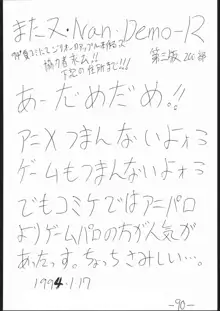 また ヌ・Nan・Demo-R
協力者求ム!!
第三版 200部
下記の住所まで!!!
あーだめだめ!!
アニメつまんないよォぅ
ゲームもつまんないよォぅ
でもコミケではアニパロ
よりゲームパロの方が人気が
あったっす。ちょっちさみしい…。
1994.1.17
-90-